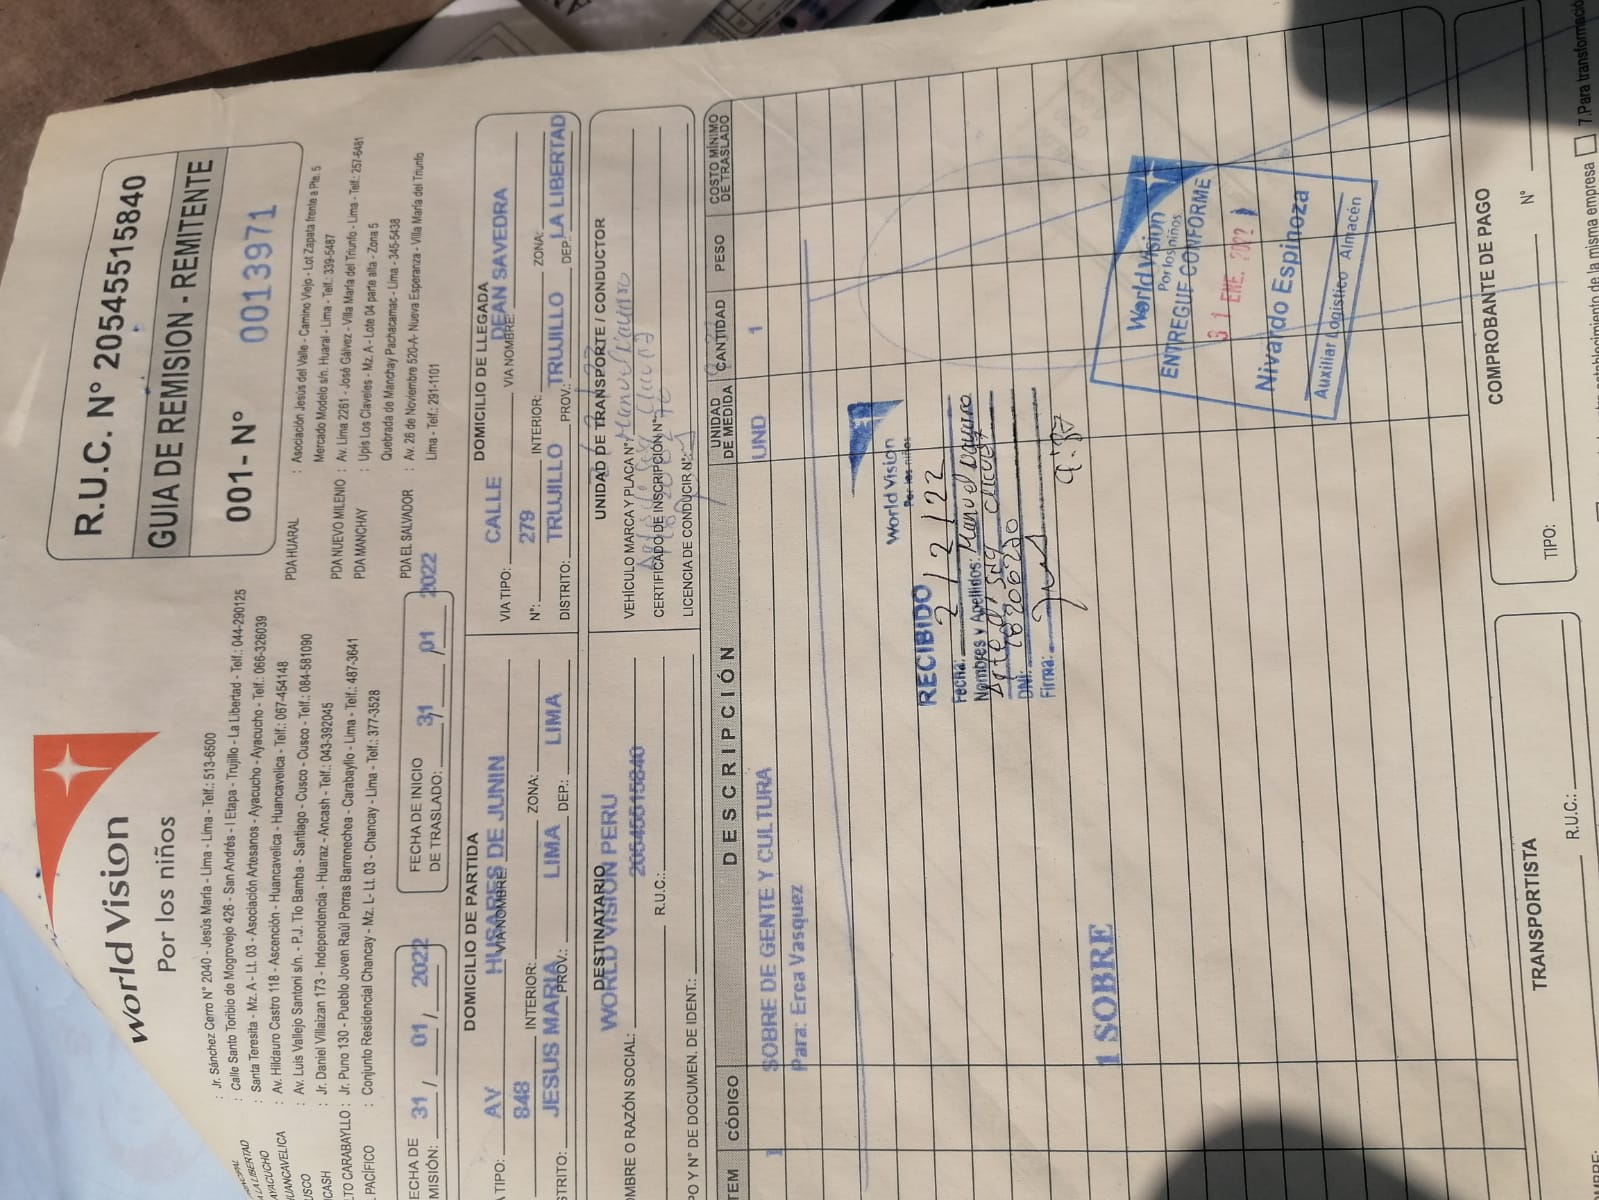 world Vision
Por los niños
R.U.C. N° 20545515840
GUIA DE REMISION - REMITENTE
001- N° 0013971
: Jr. Sánchez Cerro N° 2040 - Jesús María - Lima - Telf.: 513-6500
LA LIBERTAD : Calle Santo Toribio de Mogrovejo 426 - San Andrés - I Etapa - Trujillo - La Libertad - Telf.: 044-290125
AYACUCHO : Santa Teresita - Mz. A - Lt. 03 - Asociación Artesanos - Ayacucho - Ayacucho - Telf.: 066-326039
HUANCAVELICA : Av. Hildauro Castro 118 - Ascención - Huancavelica - Huancavelica - Telf.: 067-454148
USCO : Av. Luis Vallejo Santoni s/n. - P.J. Tío Bamba - Santiago - Cusco - Cusco - Telf.: 084-581090
CASH : Jr. Daniel Villaizan 173 - Independencia - Huaraz - Ancash - Telf.: 043-392045
LTO CARABAYLLO : Jr. Puno 130 - Pueblo Joven Raúl Porras Barrenechea - Carabayllo - Lima - Telf.: 487-3641
PACÍFICO : Conjunto Residencial Chancay - Mz. L - Lt. 03 - Chancay - Lima - Telf.: 377-3528
PDA HUARAL : Asociación Jesús del Valle - Camino Viejo - Lot Zapata frente a Pte. 5
Mercado Modelo s/n. Huaral - Lima - Telf.: 339-5487
PDA NUEVO MILENIO : Av. Lima 2261 - José Gálvez - Villa María del Triunfo - Lima - Telf.: 257-6481
PDA MANCHAY : Upis Los Claveles - Mz. A - Lote 04 parte alta - Zona 5
Quebrada de Manchay Pachacamac - Lima - 345-5438
PDA EL SALVADOR : Av. 26 de Noviembre 520-A- Nueva Esperanza - Villa María del Triunfo
Lima - Telf.: 291-1101
ECHA DE
MISIÓN: 31 / 01 / 2022
FECHA DE INICIO
DE TRASLADO: 31 / 01 2022
DOMICILIO DE PARTIDA
A TIPO: AV VIA NOMBRE: HUSARES DE JUNIN
848 INTERIOR: ZONA:
STRITO: JESUS MARIA PROV.: LIMA DEP.: LIMA
DOMICILIO DE LLEGADA
VIA TIPO: CALLE VIA NOMBRE: DEAN SAVEDRA
N°: 279 INTERIOR: ZONA:
DISTRITO: TRUJILLO PROV.: TRUJILLO DEP.: LA LIBERTAD
DESTINATARIO
OMBRE O RAZÓN SOCIAL: WORLD VISION PERU
R.U.C.: 20545515840
PO Y N° DE DOCUMEN. DE IDENT.:
UNIDAD DE TRANSPORTE / CONDUCTOR
VEHÍCULO MARCA Y PLACA N°:
CERTIFICADO DE INSCRIPCIÓN N°:
LICENCIA DE CONDUCIR N°:
TEM CÓDIGO DESCRIPCIÓN UNIDAD DE MEDIDA CANTIDAD PESO COSTO MÍNIMO DE TRASLADO
1 SOBRE DE GENTE Y CULTURA UND 1
Para: Erca Vasquez
World Vision
Por los niños
RECIBIDO
Fecha: 2 / 2 / 22
Nombres y Apellidos: Manuel
DNI:
Firma:
9:37
1 SOBRE
World Vision
Por los niños
ENTREGUE CONFORME
31 ENE. 2022
Nivardo Espinoza
Auxiliar Logístico Almacén
TRANSPORTISTA
R.U.C.:
COMPROBANTE DE PAGO
TIPO: N°
establecimiento de la misma empresa
7.Para transformació